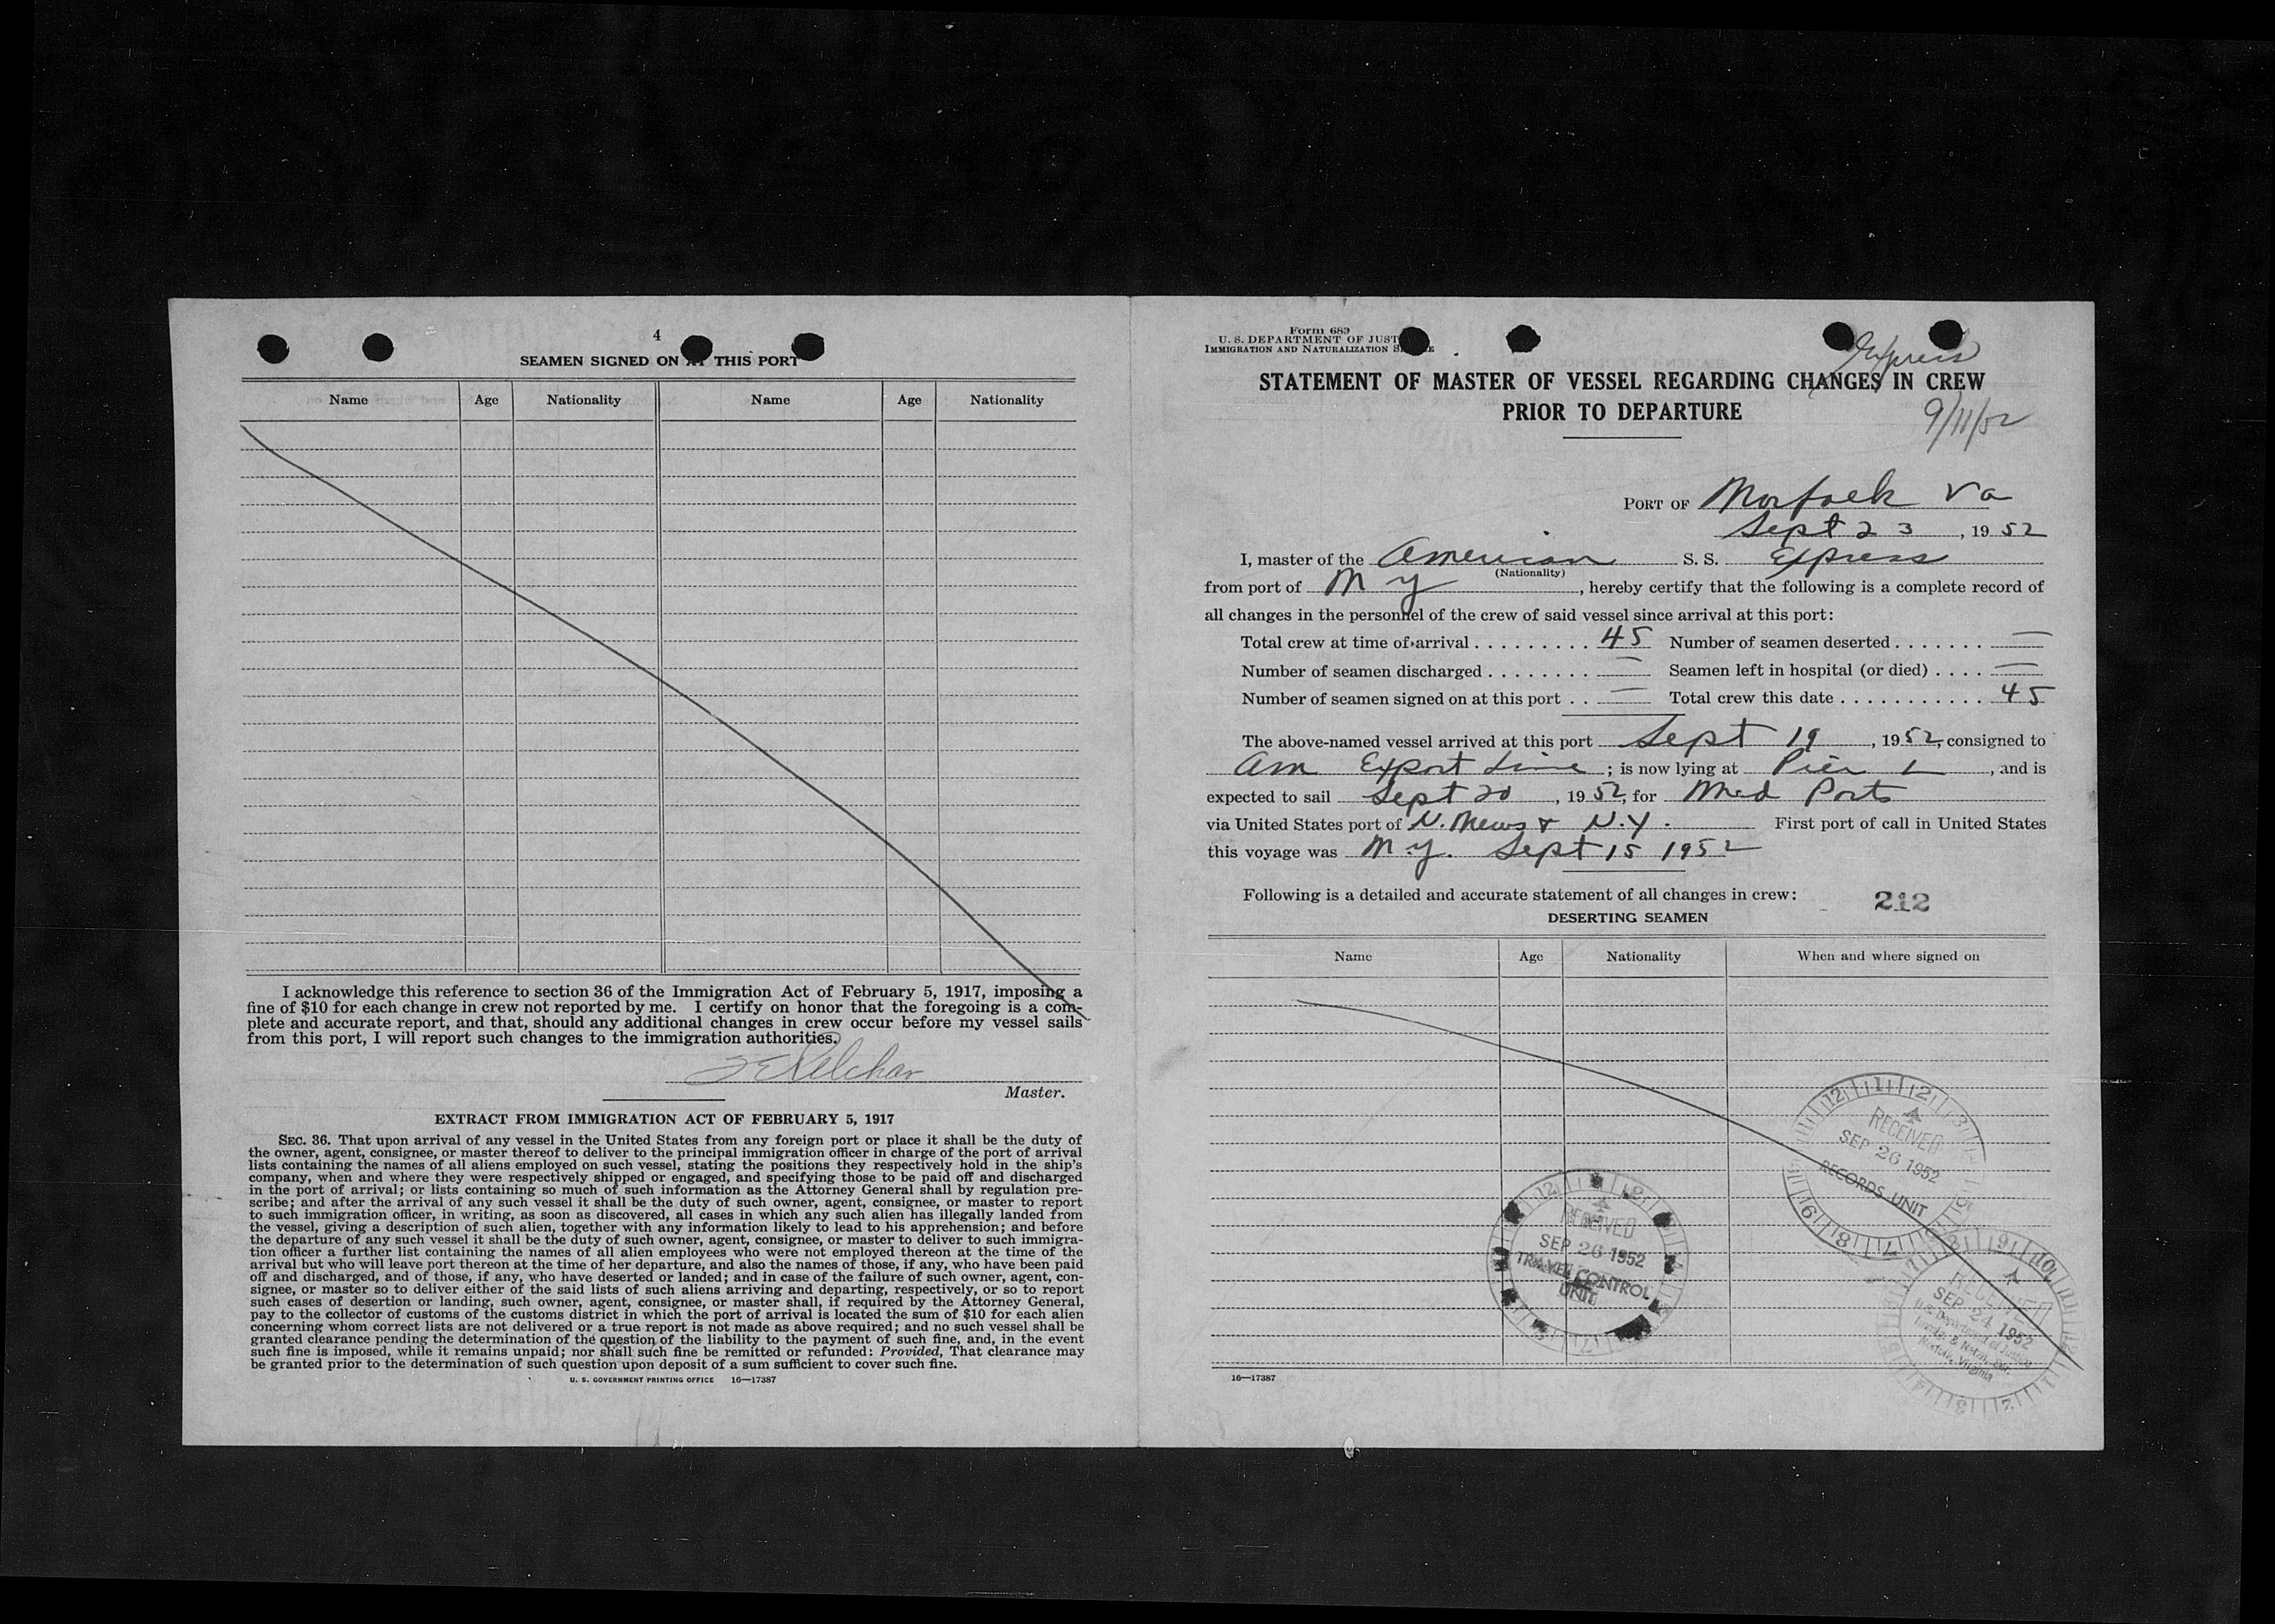 4
SEAMEN SIGNED ON AT THIS PORT
Name Age Nationality Name Age Nationality
I acknowledge this reference to section 36 of the Immigration Act of February 5, 1917, imposing a
fine of $10 for each change in crew not reported by me. I certify on honor that the foregoing is a com-
plete and accurate report, and that, should any additional changes in crew occur before my vessel sails
from this port, I will report such changes to the immigration authorities.
Master.
EXTRACT FROM IMMIGRATION ACT OF FEBRUARY 5, 1917
SEC. 36. That upon arrival of any vessel in the United States from any foreign port or place it shall be the duty of
the owner, agent, consignee, or master thereof to deliver to the principal immigration officer in charge of the port of arrival
lists containing the names of all aliens employed on such vessel, stating the positions they respectively hold in the ship's
company, when and where they were respectively shipped or engaged, and specifying those to be paid off and discharged
in the port of arrival; or lists containing so much of such information as the Attorney General shall by regulation pre-
scribe; and after the arrival of any such vessel it shall be the duty of such owner, agent, consignee, or master to report
to such immigration officer, in writing, as soon as discovered, all cases in which any such alien has illegally landed from
the vessel, giving a description of such alien, together with any information likely to lead to his apprehension; and before
the departure of any such vessel it shall be the duty of such owner, agent, consignee, or master to deliver to such immigra-
tion officer a further list containing the names of all alien employees who were not employed thereon at the time of the
arrival but who will leave port thereon at the time of her departure, and also the names of those, if any, who have been paid
off and discharged, and of those, if any, who have deserted or landed; and in case of the failure of such owner, agent, con-
signee, or master so to deliver either of the said lists of such aliens arriving and departing, respectively, or so to report
such cases of desertion or landing, such owner, agent, consignee, or master shall, if required by the Attorney General,
pay to the collector of customs of the customs district in which the port of arrival is located the sum of $10 for each alien
concerning whom correct lists are not delivered or a true report is not made as above required; and no such vessel shall be
granted clearance pending the determination of the question of the liability to the payment of such fine, and, in the event
such fine is imposed, while it remains unpaid; nor shall such fine be remitted or refunded: Provided, That clearance may
be granted prior to the determination of such question upon deposit of a sum sufficient to cover such fine.
U. S. GOVERNMENT PRINTING OFFICE 16—17387
Form 689
U. S. DEPARTMENT OF JUST
IMMIGRATION AND NATURALIZATION S
Express
STATEMENT OF MASTER OF VESSEL REGARDING CHANGES IN CREW
PRIOR TO DEPARTURE
9/11/52
PORT OF Norfolk Va
Sept 23, 1952
I, master of the American S. S. Express
(Nationality)
from port of N Y, hereby certify that the following is a complete record of
all changes in the personnel of the crew of said vessel since arrival at this port:
Total crew at time of arrival . . . . . . . . . 45 Number of seamen deserted . . . . . . . —
Number of seamen discharged . . . . . . . . — Seamen left in hospital (or died) . . . . —
Number of seamen signed on at this port . . — Total crew this date . . . . . . . . . . . 45
The above-named vessel arrived at this port Sept 19, 1952, consigned to
Am Export Line; is now lying at Pier L, and is
expected to sail Sept 20, 1952, for Med Ports
via United States port of N. News & N.Y. First port of call in United States
this voyage was N.Y. Sept 15 1952
Following is a detailed and accurate statement of all changes in crew:
212
DESERTING SEAMEN
Name Age Nationality When and where signed on
RECEIVED
SEP 26 1952
RECORDS UNIT
RECEIVED
SEP 26 1952
TRAVEL CONTROL
UNIT
RECEIVED
SEP 24 1952
U.S. Department of Justice
Immig. & Natzn. Ser.
Norfolk, Virginia
16—17387